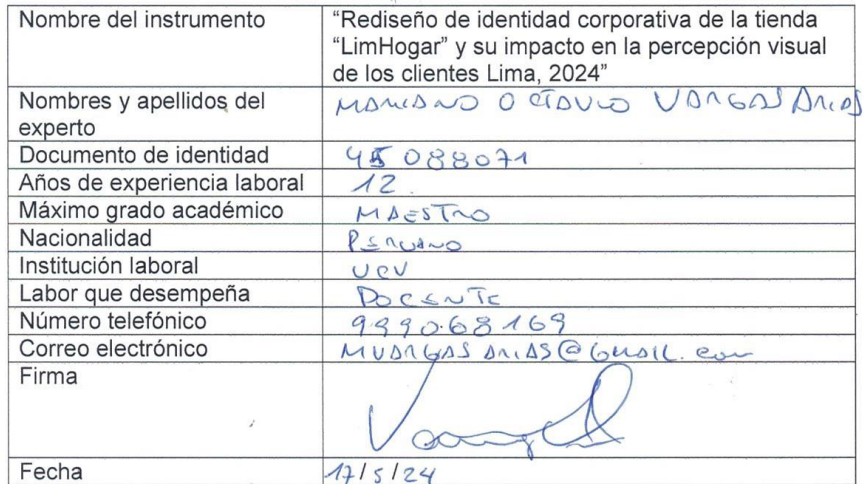 Nombre del instrumento
“Rediseño de identidad corporativa de la tienda
“LimHogar” y su impacto en la percepción visual
de los clientes Lima, 2024”
Nombres y apellidos del
experto
MARIANO OCTAVIO VARGAS ARIAS
Documento de identidad
45088071
Años de experiencia laboral
12.
Máximo grado académico
MAESTRO
Nacionalidad
PERUANO
Institución laboral
UCV
Labor que desempeña
DOCENTE
Número telefónico
999068169
Correo electrónico
MVARGASARIAS@GMAIL.com
Firma
Fecha
17/5/24